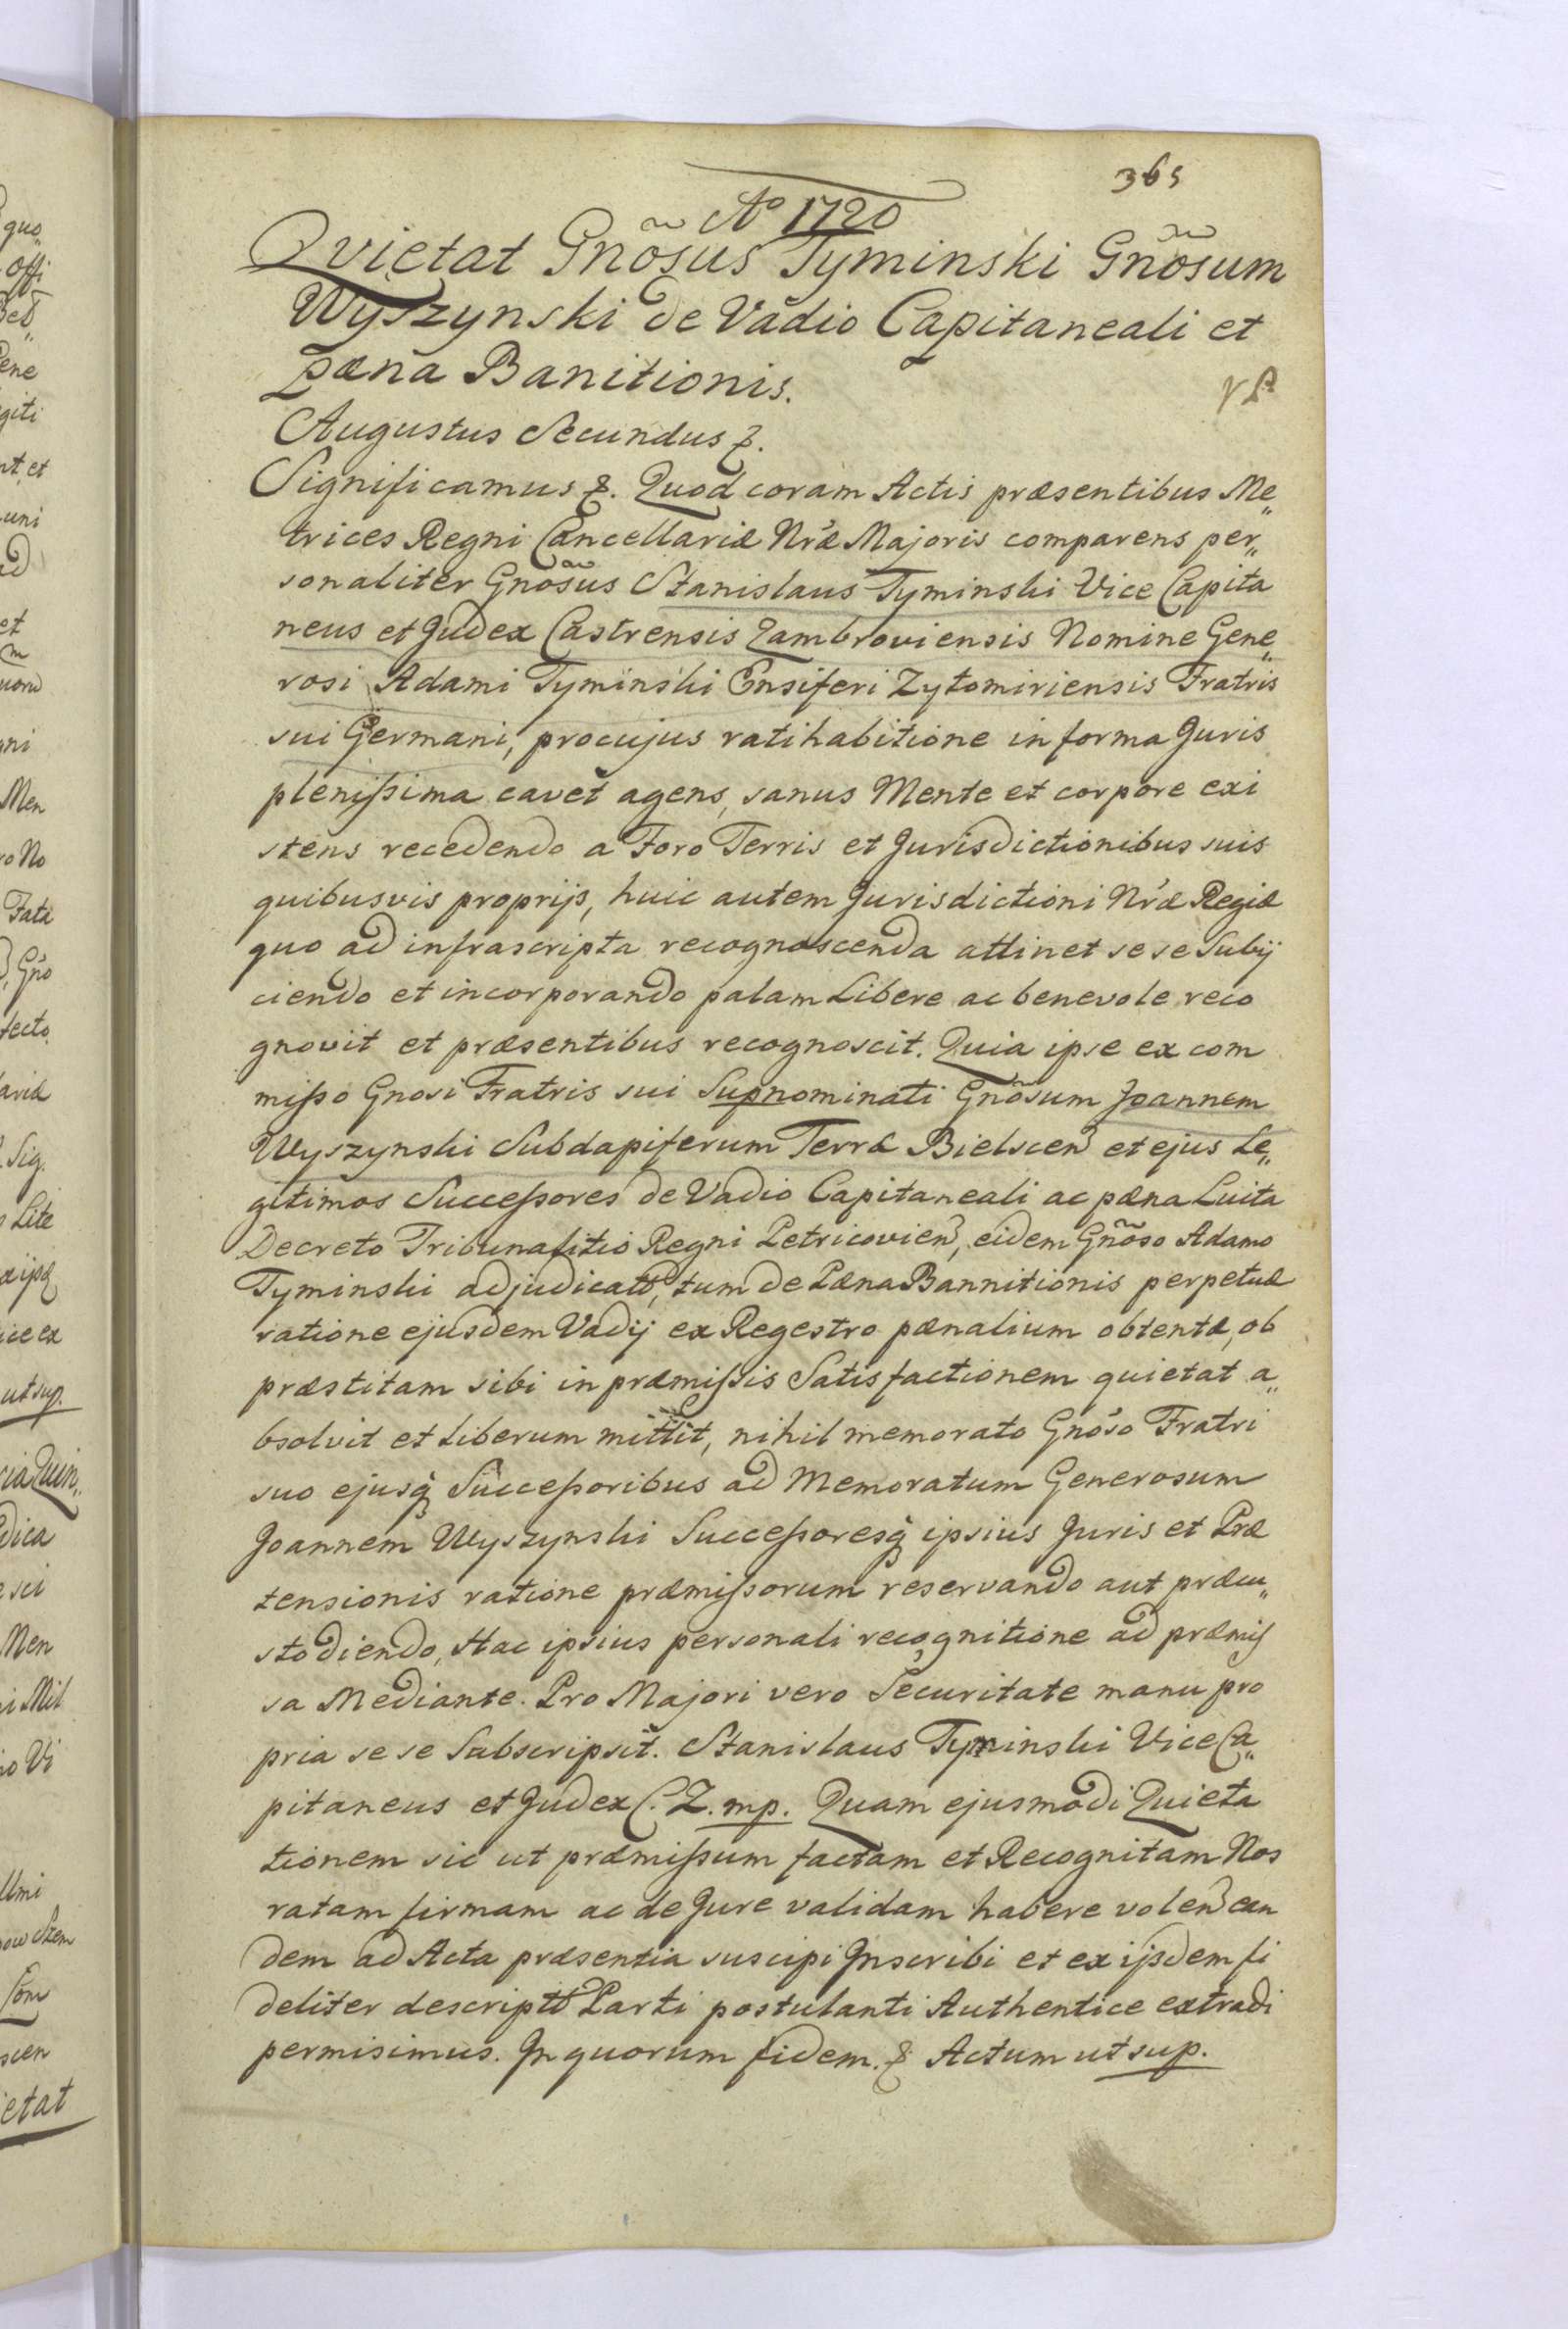 365
Aº 1720
Qvietat Gnõsus Tyminski Gnõsum
Wyszynski de Vadio Capitaneali et
pæna Banitionis.
Augustus Secundus &.
Significamus &. Quod coram Actis præsentibus Me„
trices Regni Cancellariæ Nræ Majoris comparens per„
sonaliter Gnõsus Stanislaus Tyminski Vice Capita
neus et Judex Castrensis Zambroviensis Nomine Gene„
rosi Adami Tyminski Ensiferi Zytomiriensis Fratris
sui Germani, procujus ratihabitione in forma Juris
plenissima cavet agens, sanus Mente et corpore exi
stens recedendo a Foro Terris et Jurisdictionibus suis
quibusvis proprijs, huic autem Jurisdictioni Nræ Regiæ
quo ad infrascripta recognoscenda attinet se se Subij
ciendo et incorporando palam Libere ac benevole reco
gnovit et præsentibus recognoscit. Quia ipse ex com
misso Gnosi Fratris sui Supnominati Gnõsum Joannem
Wyszynski Subdapiferum Terræ Bielscen et ejus Le„
gitimos Successores de Vadio Capitaneali ac pæna Luita
Decreto Tribunalitio Regni Petricovien, eidem Gnõso Adamo
Tyminski adjudicato, tum de Pæna Bannitionis perpetuæ
ratione ejusdem Vadij ex Regestro pænalium obtentæ, ob
præstitam sibi in præmissis Satisfactionem quietat a„
bsolvit et Liberum mittit, nihil memorato Gnõso Fratri
suo ejusq Successoribus ad Memoratum Generosum
Joannem Wyszynski Successoresq ipsius Juris et Præ
tensionis ratione præmissorum reservando aut præcu„
stodiendo, Hac ipsius personali recognitione ad præmis
sa Mediante. Pro Majori vero Securitate manu pro
pria se se Subscripsit. Stanislaus Tyminski Vice Ca„
pitaneus et Judex C. Z. mp. Quam ejusmodi Quieta
tionem sic ut præmissum factam et Recognitam Nos
ratam firmam ac de Jure validam habere volen ean
dem ad Acta præsentia suscipi Inscribi et ex ijsdem fi
deliter descriptt Parti postulanti Authentice extradi
permisimus. In quorum fidem. & Actum ut sup.